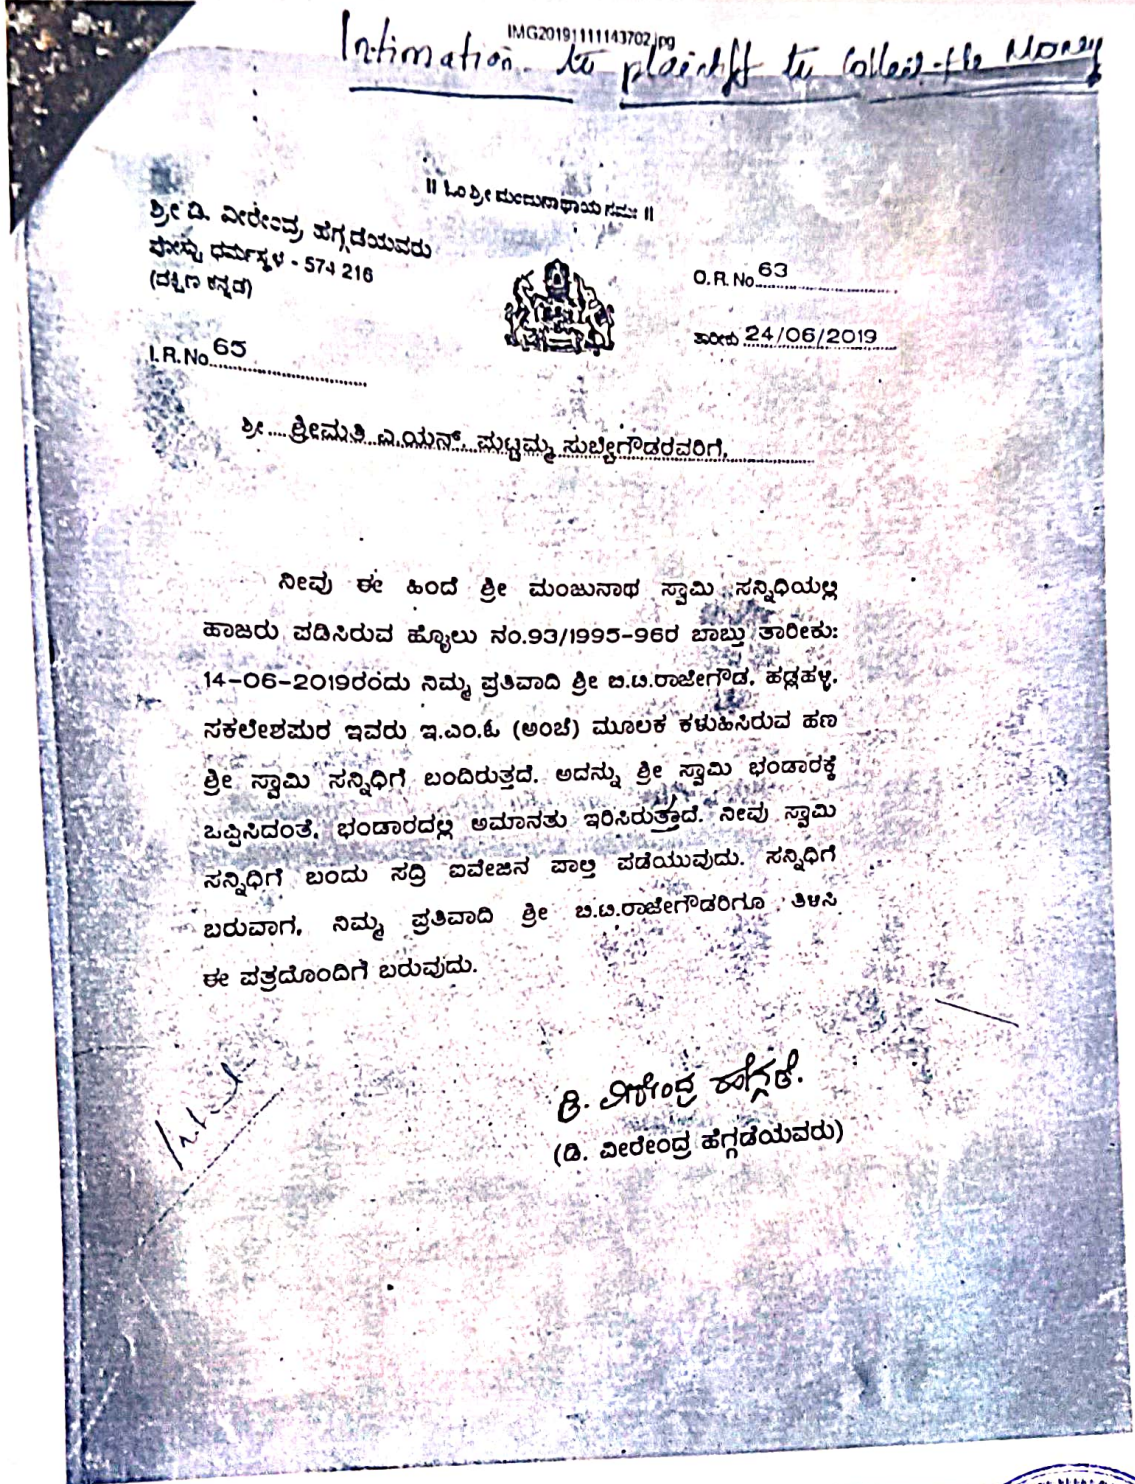 IMG20191111143702.jpg
Intimation to plaintiff to Collect the Money
॥ ಓಂ ಶ್ರೀ ಮಂಜುನಾಥಾಯ ನಮಃ ॥
ಶ್ರೀ ಡಿ. ವೀರೇಂದ್ರ ಹೆಗ್ಗಡೆಯವರು
ಪೋಸ್ಟು ಧರ್ಮಸ್ಥಳ - 574 216
(ದಕ್ಷಿಣ ಕನ್ನಡ)
O.R. No. 63
ತಾರೀಕು 24/06/2019
I.R. No. 65
ಶ್ರೀ.... ಶ್ರೀಮತಿ ಎ.ಯನ್. ಪುಟ್ಟಮ್ಮ ಸುಬ್ಬೇಗೌಡರವರಿಗೆ,
ನೀವು ಈ ಹಿಂದೆ ಶ್ರೀ ಮಂಜುನಾಥ ಸ್ವಾಮಿ ಸನ್ನಿಧಿಯಲ್ಲಿ
ಹಾಜರು ಪಡಿಸಿರುವ ಹ್ಯೊಲು ನಂ.93/1995-96ರ ಬಾಬ್ತು ತಾರೀಕು:
14-06-2019ರಂದು ನಿಮ್ಮ ಪ್ರತಿವಾದಿ ಶ್ರೀ ಬಿ.ಟಿ.ರಾಜೇಗೌಡ, ಹಡ್ಲಹಳ್ಳಿ,
ಸಕಲೇಶಪುರ ಇವರು ಇ.ಎಂ.ಓ (ಅಂಚೆ) ಮೂಲಕ ಕಳುಹಿಸಿರುವ ಹಣ
ಶ್ರೀ ಸ್ವಾಮಿ ಸನ್ನಿಧಿಗೆ ಬಂದಿರುತ್ತದೆ. ಅದನ್ನು ಶ್ರೀ ಸ್ವಾಮಿ ಭಂಡಾರಕ್ಕೆ
ಒಪ್ಪಿಸಿದಂತೆ, ಭಂಡಾರದಲ್ಲಿ ಅಮಾನತು ಇರಿಸಿರುತ್ತಾದೆ. ನೀವು ಸ್ವಾಮಿ
ಸನ್ನಿಧಿಗೆ ಬಂದು ಸದ್ರಿ ಐವೇಜಿನ ಪಾಲ್ತಿ ಪಡೆಯುವುದು. ಸನ್ನಿಧಿಗೆ
ಬರುವಾಗ, ನಿಮ್ಮ ಪ್ರತಿವಾದಿ ಶ್ರೀ ಬಿ.ಟಿ.ರಾಜೇಗೌಡರಿಗೂ ತಿಳಿಸಿ
ಈ ಪತ್ರದೊಂದಿಗೆ ಬರುವುದು.
ಡಿ. ವೀರೇಂದ್ರ ಹೆಗ್ಗಡೆ.
(ಡಿ. ವೀರೇಂದ್ರ ಹೆಗ್ಗಡೆಯವರು)